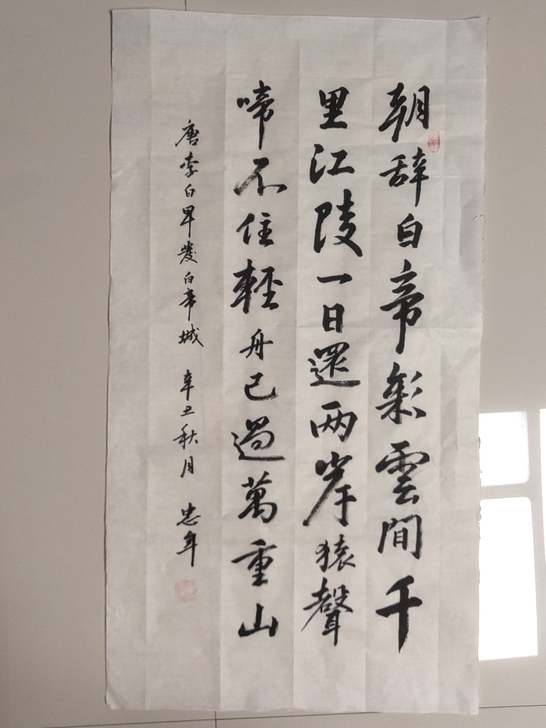 朝辞白帝彩雲間千
里江陵一日還两岸猿聲
啼不住輕舟已過萬重山
唐李白早發白帝城 辛丑秋月 忠年